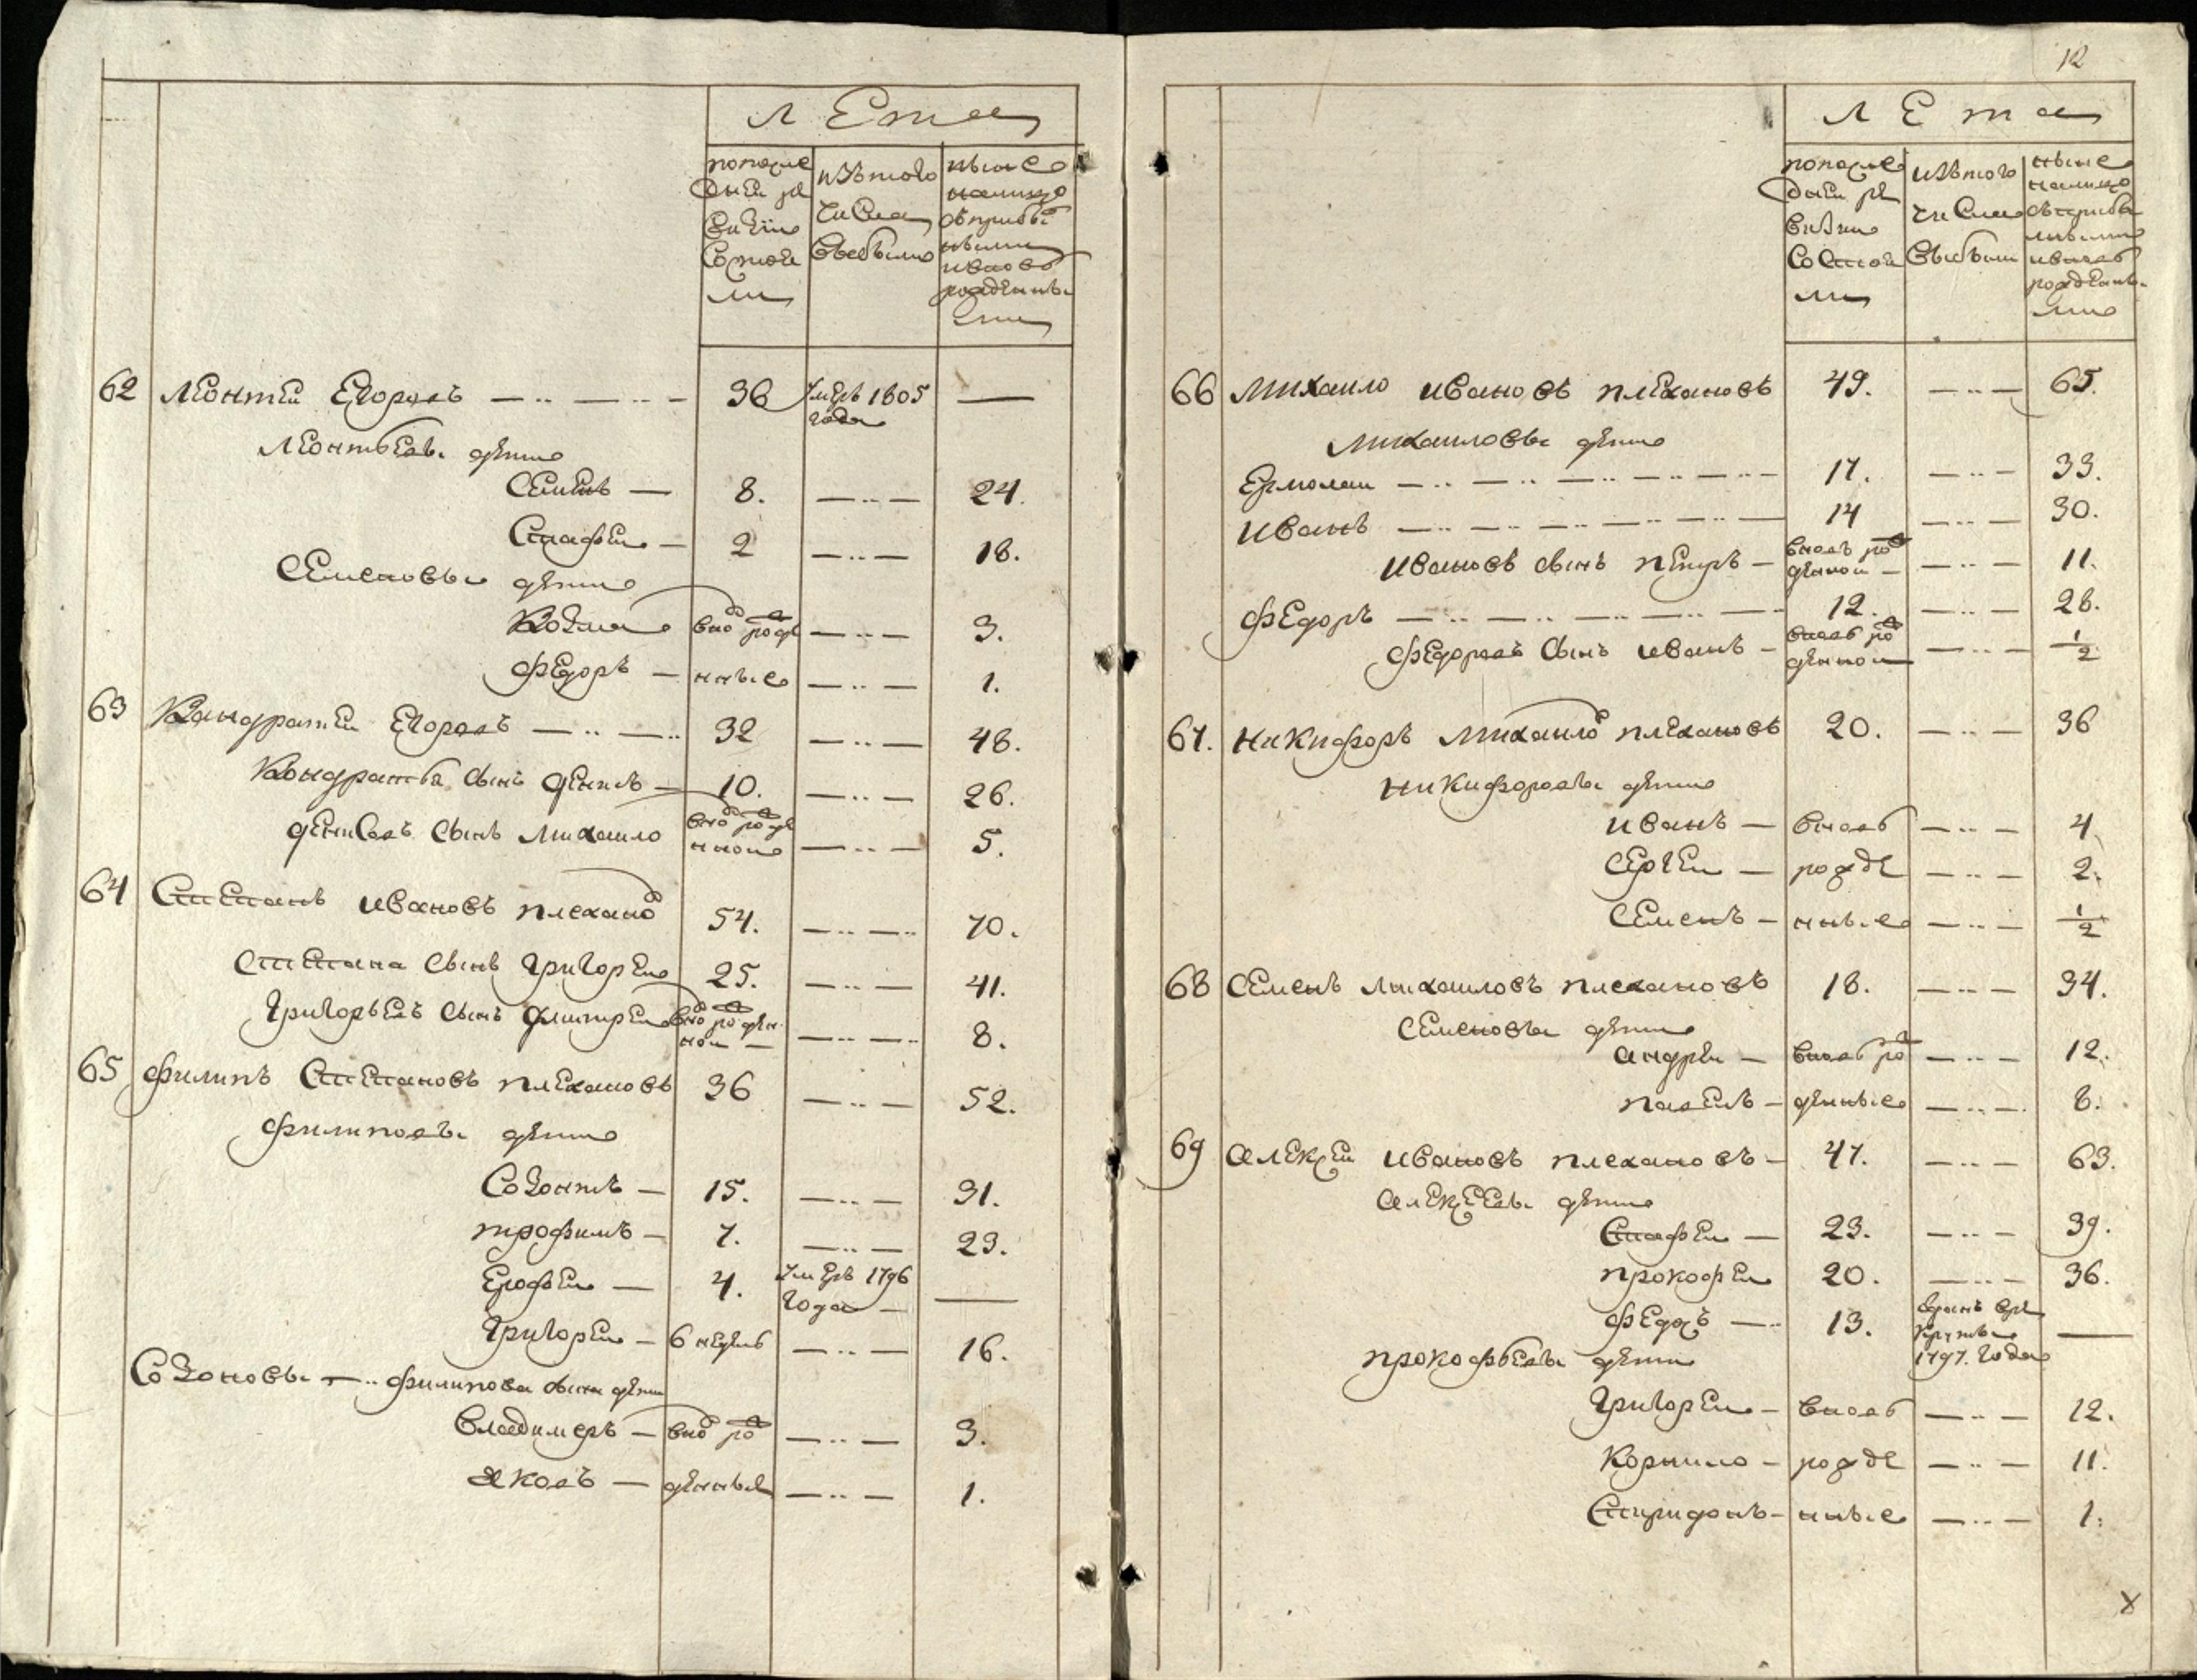 Лета
по после
дней ре
визiи
состоя
ли
изъ того
числа
выбыло
ныне
налицо
съ прибы
лыми
и вновь
рожденны
ми
62 Леонтей Егоровъ 36 умеръ 1805 —
года
Леонтьевы дети
Семенъ — 8. — 24.
Стафей — 2 — 18.
Семеновы дети
Козма вно рожде — 3.
Федоръ — нные — 1.
63 Кандратей Егоровъ — 32 — 48.
Кондратьа сынъ Денисъ — 10. — 26.
Денисовъ сынъ Михаило вно рожде — 5.
нной
64 Степанъ Ивановъ Плехано 54. — 70.
Степана сынъ Григорей 25. — 41.
Григорьевъ сынъ Дмитрей вно рожден — 8.
ной —
65 Филипъ Степановъ Плехановъ 36 — 52.
Филиповы дети
Созонтъ — 15. — 31.
Трофимъ — 7. — 23.
Ерофей — 4. умеръ 1796 —
года —
Григорей — 6 недель — 16.
Созоновы — Филипова сына дети
Владимеръ — вно ро — 3.
Яковъ — жденные — 1.
12
Лета
по после
дней ре
визии
состоя
ли
изъ того
числа
выбыли
ныне
налицо
съ прибы
лыми
и вновь
рожденны
ми
66 Михаило Ивановъ Плехановъ 49. — 65.
Михаиловы дети
Ермолаи — 17. — 33.
Иванъ — 14 — 30.
Ивановъ сынъ Петръ — вновь ро — 11.
жденной —
Федоръ — 12. — 28.
Федоровъ сынъ Иванъ — вновь ро — 1/2
жденной
67. Никифоръ Михаило Плехановъ 20. — 36
Никифоровы дети
Иванъ — вновь — 4
Сергей — рожде — 2.
Семенъ — нные — 1/2
68 Семенъ Михаиловъ Плехановъ 18. — 34.
Семеновы дети
Андрей — вновь ро — 12.
Павелъ — жденные — 8.
69 Алексей Ивановъ Плехановъ — 47. — 63.
Алексеевы дети
Стафей — 23. — 39.
Прокофей 20. — 36.
Федоръ — 13. отданъ въ ре —
круты
1797. года
Прокофьевы дети
Григорей — вновь — 12.
Корнило — рожде — 11.
Спиридонъ — нные — 1.